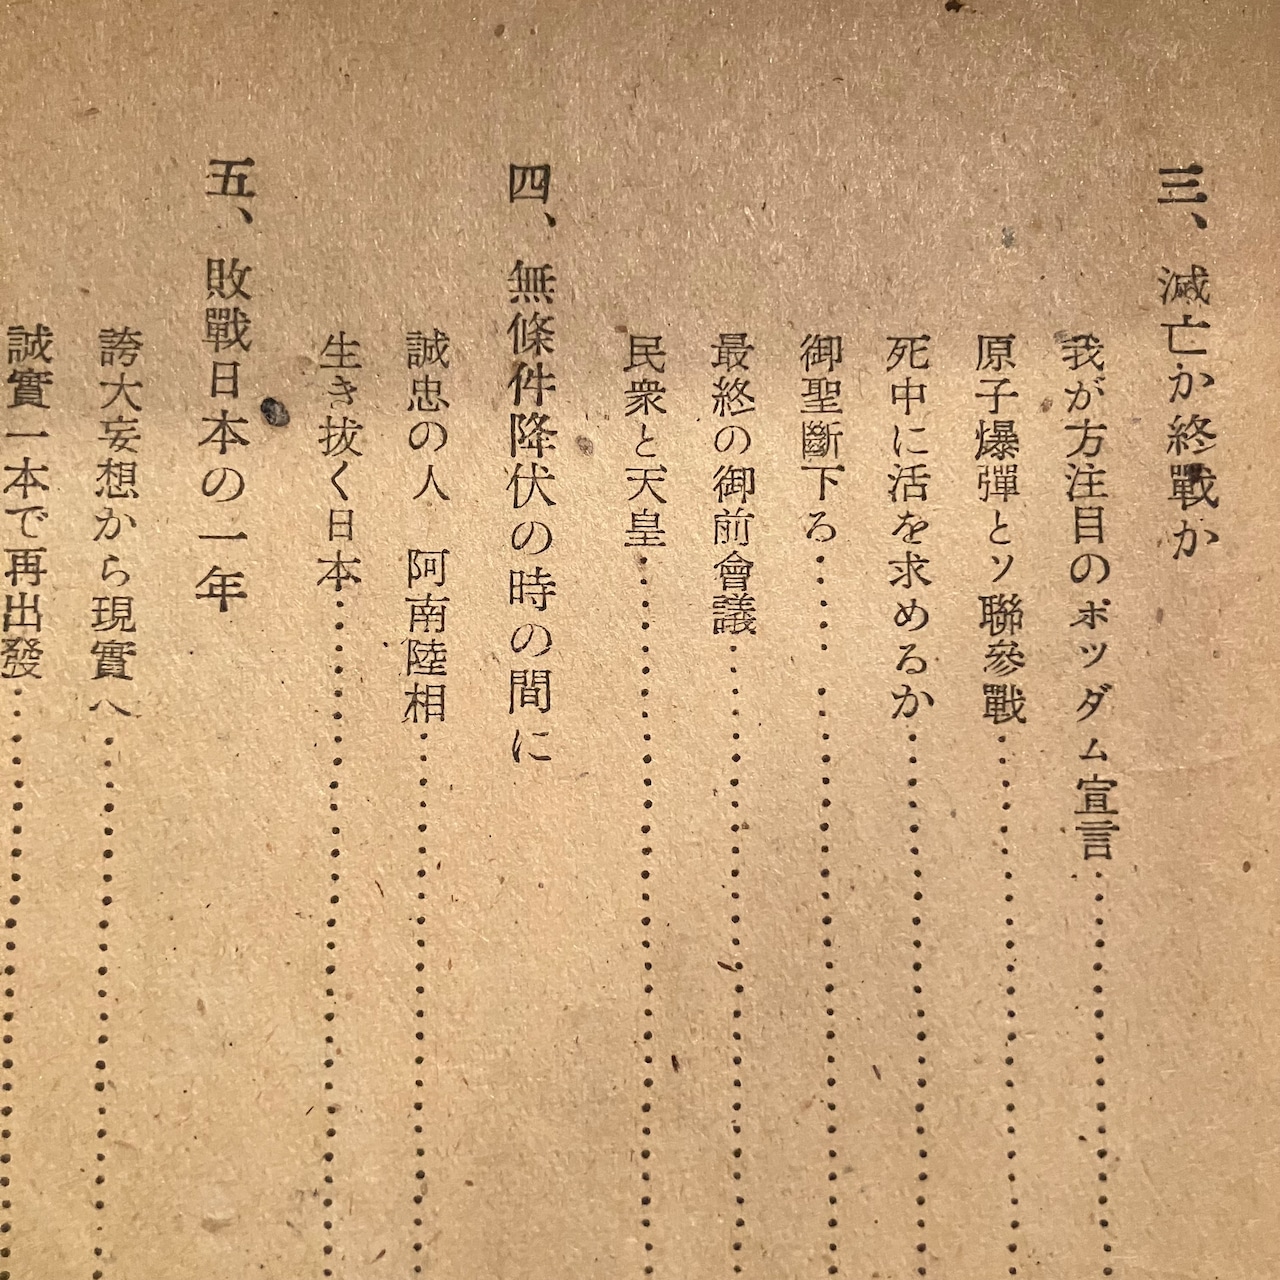 三、滅亡か終戰か
我が方注目のポツダム宣言
原子爆彈とソ聯參戰
死中に活を求めるか
御聖斷下る
最終の御前會議
民衆と天皇
四、無條件降伏の時の間に
誠忠の人　阿南陸相
生き拔く日本
五、敗戰日本の一年
誇大妄想から現實へ
誠實一本で再出發